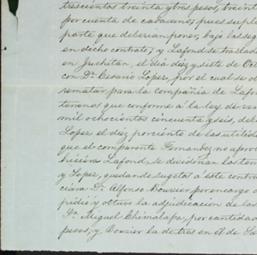 trescientos treinta y tres pesos, treint
por cuenta de cada uno, pues suple
parte que deberian poner, bajo las seg
en dicho contrato, y Lafond se traslad
en Juchitan, el dia diez y siete de Oct
con Dn. Cesario Lopez, por el cual se o
rematar para la compañia de Lafo
terrenos que conforme a la ley de ve
mil ochocientos cincuenta y seis, de
Lopez el diez por ciento de las utilida
que el compareciente Fernandez no aprov
hiciera Lafond, se dividirian los ter
y Lopez, quedando sujetas a este contra
ciara Dn. Alfonso por encargo
pidio y obtuvo la adjudicacion de las
Dn. Miguel Chimalapa, por cantidad
pesos, y la de tres en el de Sa